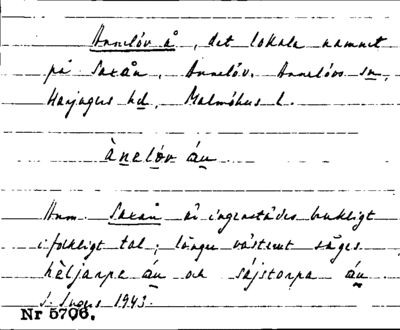 Annelöv å, det lokala namnet
på Saxån, Annelöv, Annelövs sn,
Harjagers hd, Malmöhus l.
ànelöv áu
Namn. Saxån är ingenstädes brukligt
i folkligt tal; längre västerut säges
hèljarpe áu och sájstorpa áu
Nr 5706.
1943.